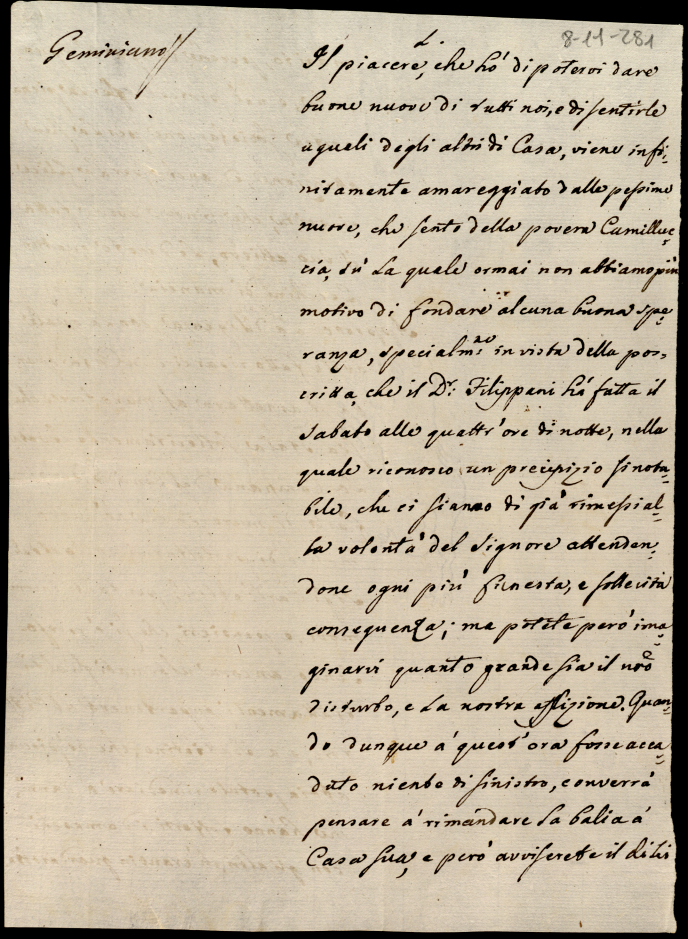 8-11-281
Geminiano
Il piacere, che hò di potervi dare
buone nuove di tutti noi, e di sentirle
uguali degli altri di Casa, viene infi-
nitamente amareggiato dalle pessime
nuove, che sento della povera Camilluc-
cia, sù la quale ormai non abbiamo più
motivo di fondare alcuna buona spe-
ranza, specialm.te in vista della pos-
critta, che il Dr: Filippani hà fatta il
Sabato alle quattr'ore di notte, nella
quale riconosco un precipizio sì nota-
bile, che ci siamo di già rimessi al-
la volontà del Signore attenden-
done ogni più funesta, e sollecita
conseguenza; ma potete però ima-
ginarvi quanto grande sia il nrô
disturbo, e la nostra afflizione. Quan-
do dunque à quest'ora fosse acca-
duto niente di sinistro, converrà
pensare à rimandare la balia à
Casa sua, e però avviserete il di lei